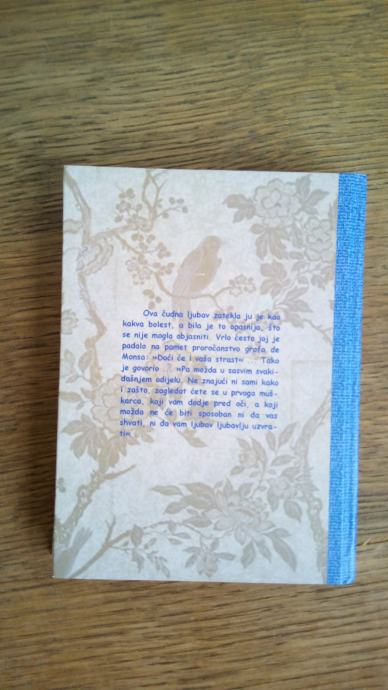 Ova čudna ljubav zatekla ju je kao
kakva bolest, a bila je to opasnija, što
se nije mogla objasniti. Vrlo često joj je
padalo na pamet proročanstvo grofa de
Monsa: »Doći će i vaša strast« . . . Tako
je govorio . . . »Pa možda u sasvim svaki-
dašnjem odijelu. Ne znajući ni sami kako
i zašto, zagledat ćete se u prvoga muš-
karca, koji vam dodje pred oči, a koji
možda ne će biti sposoban ni da vas
shvati, ni da vam ljubav ljubavlju uzvra-
ti«